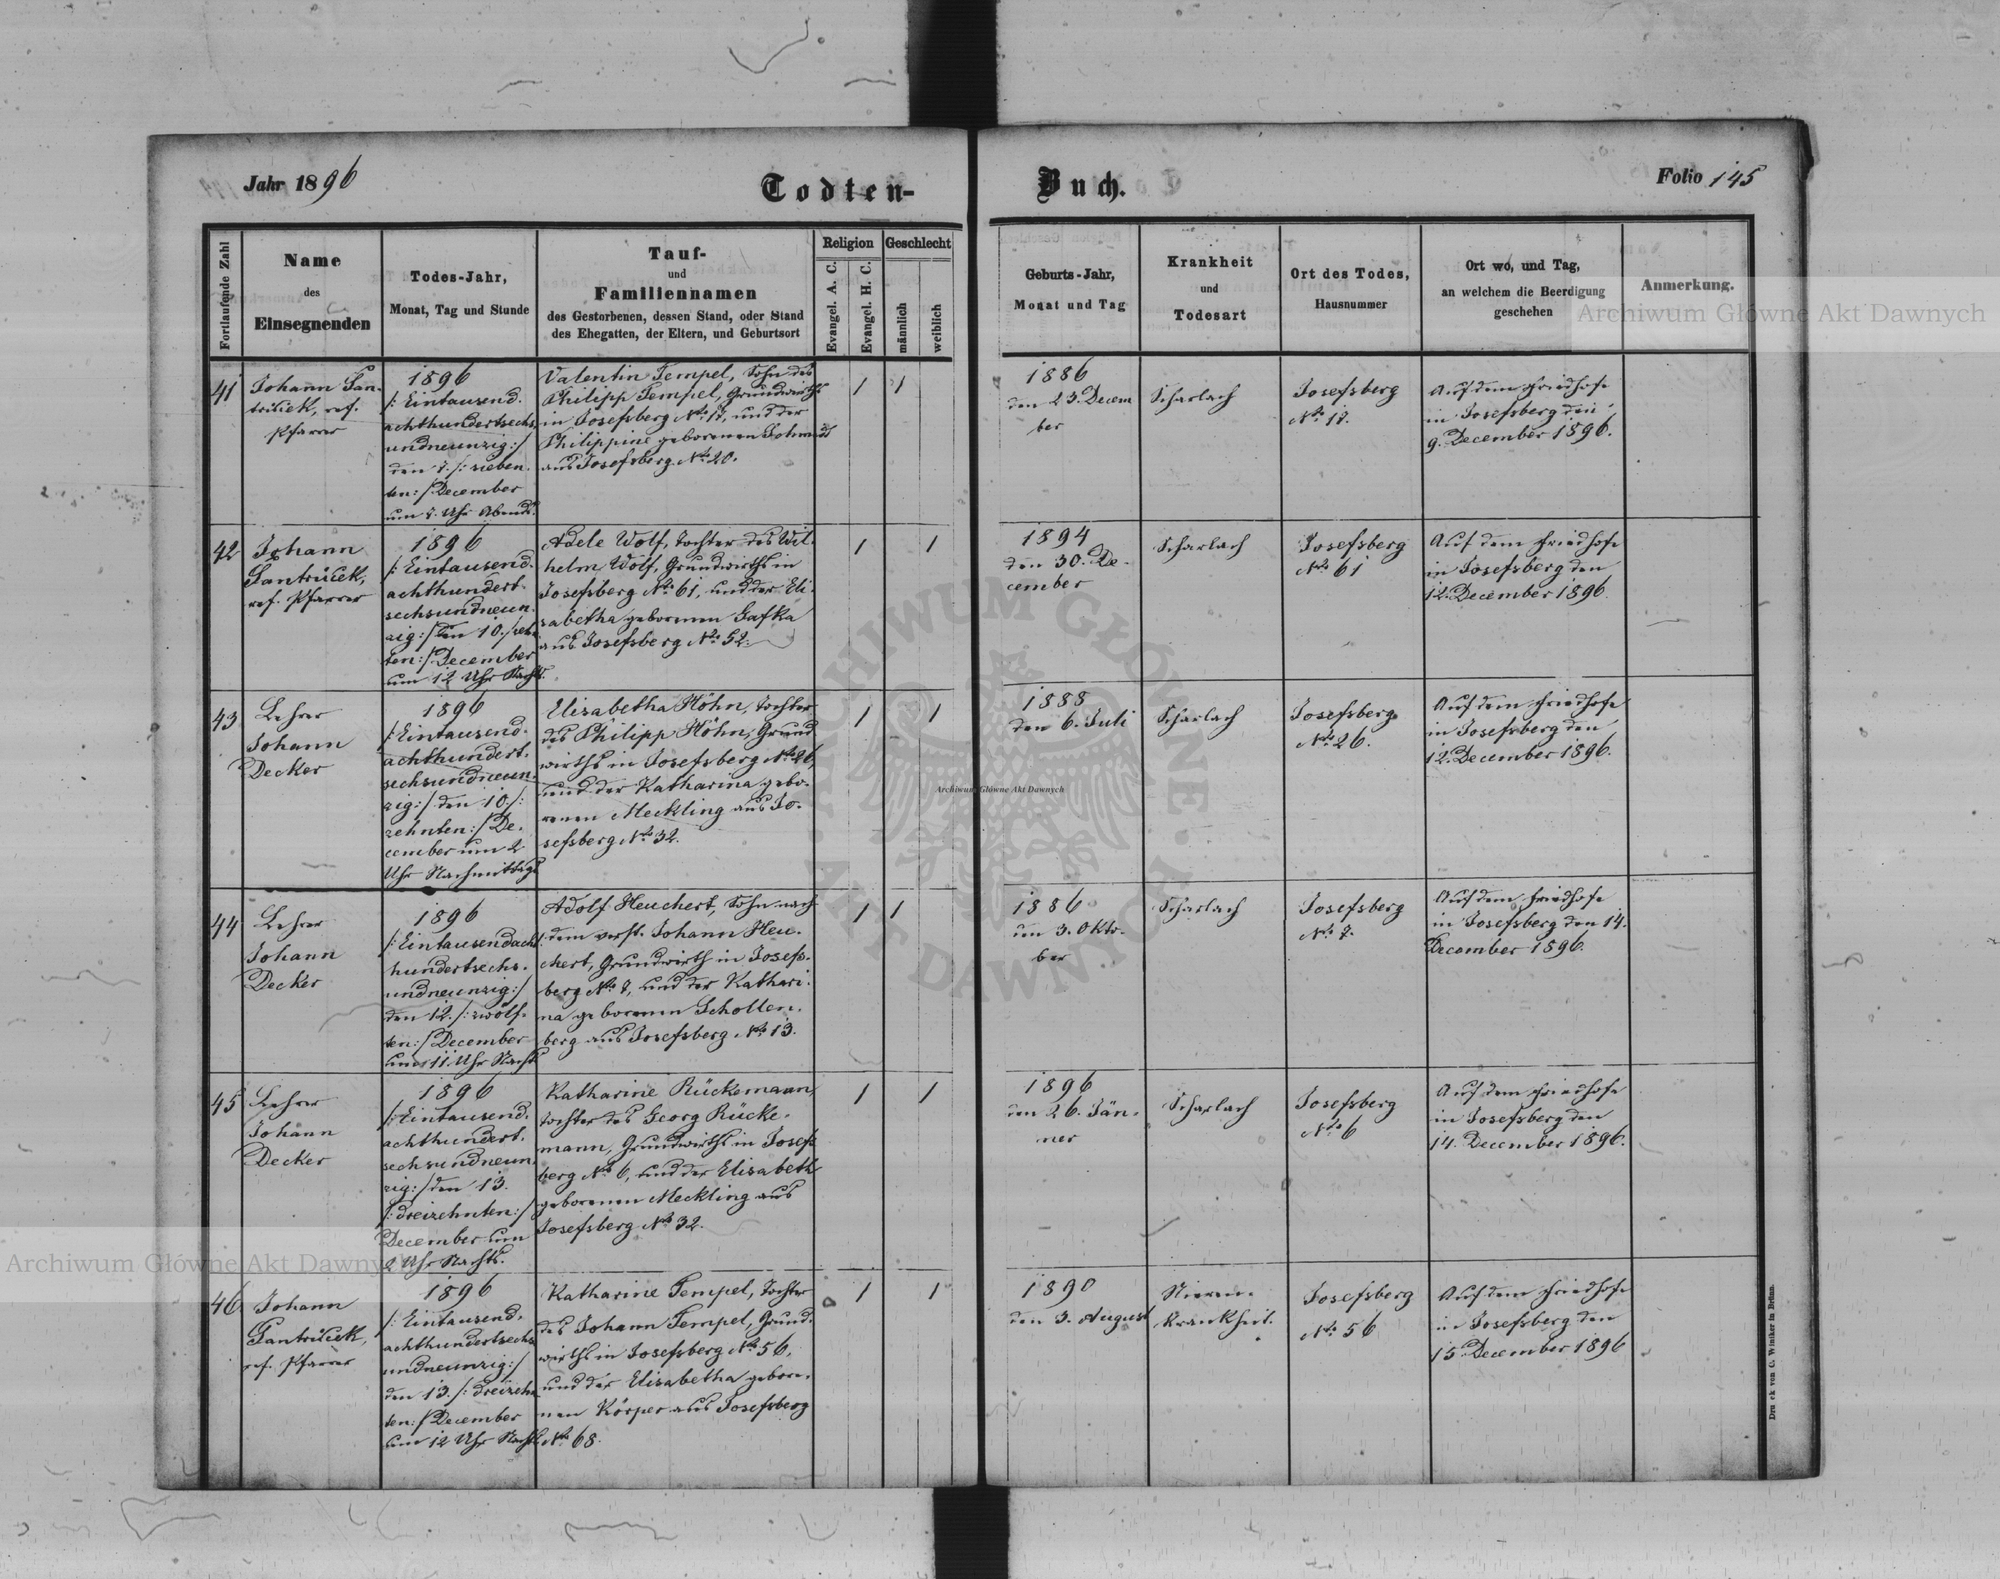 Jahr 1896
Todten-
Buch.
Folio 145
Fortlaufende Zahl
Name
des
Einsegnenden
Todes-Jahr,
Monat, Tag und Stunde
Tauf-
und
Familiennamen
des Gestorbenen, dessen Stand, oder Stand
des Ehegatten, der Eltern, und Geburtsort
Religion
Evangel. A. C.
Evangel. H. C.
Geschlecht
männlich
weiblich
Geburts-Jahr,
Monat und Tag
Krankheit
und
Todesart
Ort des Todes,
Hausnummer
Ort wo, und Tag,
an welchem die Beerdigung
geschehen
Anmerkung.
41
Johann
ref.
Pfarrer
1896
/: Eintausend-
achthundertsechs-
undneunzig :/
den 7. /: sieben-
ten :/ December
um 7. Uhr Abends.
Valentin Tempel, Sohn des
Philipp Tempel, Grundwirths
in Josefsberg No. 17, und der
Philippine geborenen Schmidt
aus Josefsberg No. 20.
1
1
1886
den 23. Decem
ber
Scharlach
Josefsberg
No. 17.
Auf dem Friedhofe
in Josefsberg den
9. December 1896.
42
Johann
ref. Pfarrer
1896
/: Eintausend-
achthundert-
sechsundneun-
zig :/ den 10. /: zehn-
ten :/ December
um 12 Uhr Nachts.
Adele Wolf, Tochter des Wil-
helm Wolf, Grundwirths in
Josefsberg No. 61, und der Eli-
sabetha geborenen Gafka
aus Josefsberg No. 52.
1
1
1894
den 30. De-
cember
Scharlach
Josefsberg
No. 61
Auf dem Friedhofe
in Josefsberg den
12. December 1896.
43
Lehrer
Johann
Decker
1896
/: Eintausend-
achthundert-
sechsundneun-
zig :/ den 10. /:
zehnten :/ De-
cember um 2
Uhr Nachmittags
Elisabetha Höhn, Tochter
des Philipp Höhn, Grund
wirths in Josefsberg No. 26,
und der Katharina gebo-
renen Meckling aus Jo-
sefsberg No. 32.
1
1
1888
den 6. Juli
Scharlach
Josefsberg
No. 26.
Auf dem Friedhofe
in Josefsberg den
12. December 1896.
44
Lehrer
Johann
Decker
1896
/: Eintausendacht
hundertsechs-
undneunzig :/
den 12. /: zwölf-
ten :/ December
um 11. Uhr Nachts
Adolf Heuchert, Sohn nach
dem verst. Johann Heu-
chert, Grundwirth in Josefs-
berg No. 7, und der Kathari-
na geborenen Schollen-
berg aus Josefsberg No. 13.
1
1
1886
den 3. Okto-
ber
Scharlach
Josefsberg
No. 7.
Auf dem Friedhofe
in Josefsberg den 14.
December 1896.
45
Lehrer
Johann
Decker
1896
/: Eintausend-
achthundert-
sechsundneun-
zig :/ den 13.
/: dreizehnten :/
December um
2 Uhr Nachts.
Katharine Rückemann,
Tochter des Georg Rücke-
mann, Grundwirths in Josefs
berg No. 6, und der Elisabeth
geborenen Meckling aus
Josefsberg No. 32.
1
1
1896
den 26. Jän-
ner
Scharlach
Josefsberg
No. 6
Auf dem Friedhofe
in Josefsberg den
14. December 1896.
46
Johann
ref. Pfarrer
1896
/: Eintausend-
achthundertsechs
undneunzig :/
den 13. /: dreizehn
ten :/ December
um 12 Uhr Nachts
Katharine Tempel, Tochter
des Johann Tempel, Grund-
wirths in Josefsberg No. 56,
und der Elisabetha gebore-
nen Körper aus Josefsberg
No. 68.
1
1
1890
den 3. August
Nieren-
Krankheit.
Josefsberg
No. 56
Auf dem Friedhofe
in Josefsberg den
15. December 1896
Archiwum Główne Akt Dawnych
Archiwum Główne Akt Dawnych
Archiwum Główne Akt Dawnych
ARCHIWUM GŁÓWNE · AKT DAWNYCH ·
Druck von C. Winiker in Brünn.